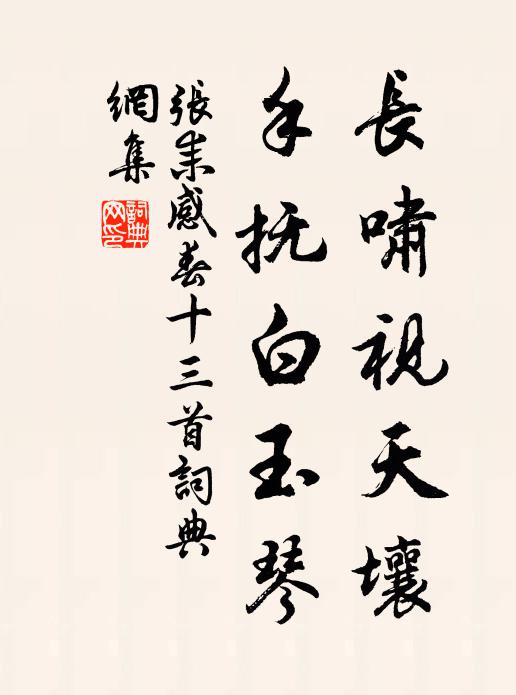 長嘯視天壤
手抚白玉琴
張耒感春十三首詞典
網集
詞典
网印